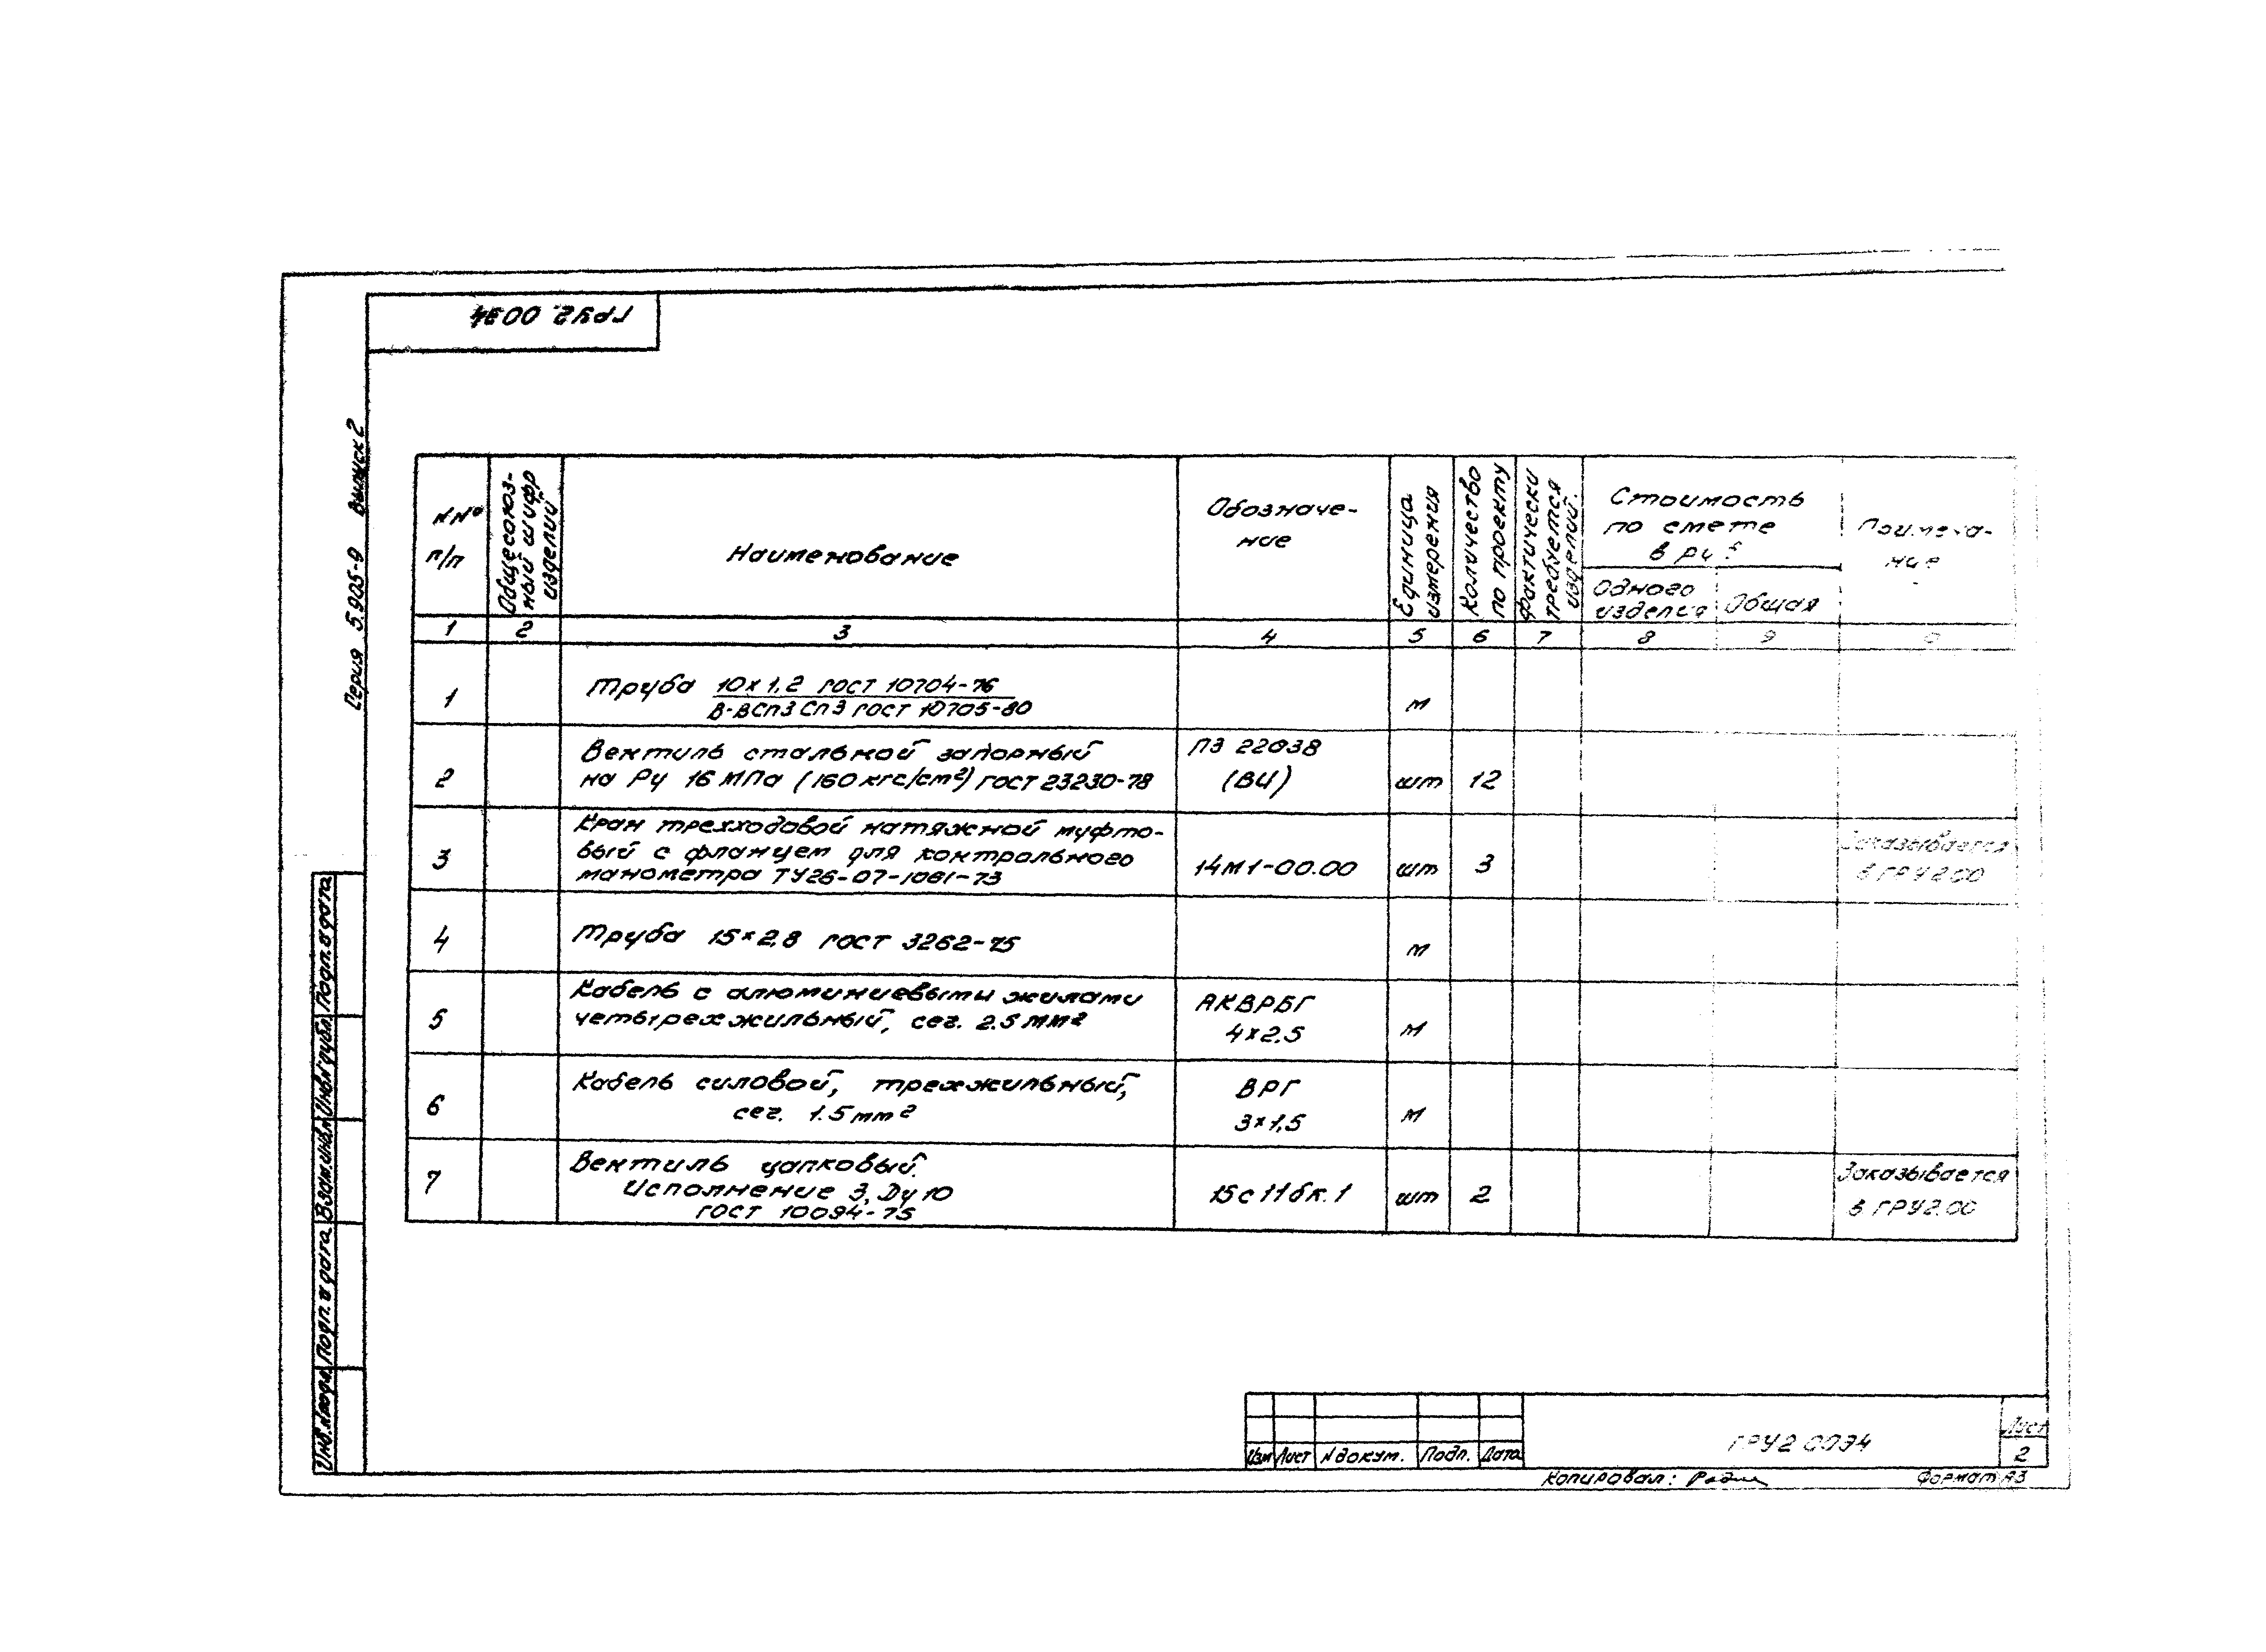 ГРУ2. 00Э4
Серия 5.905-9 Выпуск 2
NNº п/п
Общесоюз-
ный шифр
изделий
Наименование
Обозначе-
ние
Единица
измерения
Количество
по проекту
Фактически
требуется
изделий.
Стоимость
по смете
в руб
Одного
изделия
Общая
Примеча-
ние
1 2 3 4 5 6 7 8 9
1 Труба 10×1,2 ГОСТ 10704-76 м
В-ВСп3 Сп3 ГОСТ 10705-80
2 Вентиль стальной запорный ПЗ 22038
на Ру 16 МПа (160 кгс/см²) ГОСТ 23230-78 (ВЦ) шт 12
3 Кран трехходовой натяжной муфто-
вый с фланцем для контрольного 14М1-00.00 шт 3 Заказывается
манометра ТУ26-07-1061-73 в ГРУ2.00
4 Труба 15×2,8 ГОСТ 3262-75 м
5 Кабель с алюминиевыми жилами АКВРБГ
четырехжильный, сеч. 2.5 мм² 4×2,5 м
6 Кабель силовой, трехжильный, ВРГ
сеч. 1.5 mm² 3×1,5 м
7 Вентиль цапковый. Заказывается
Исполнение 3, Ду 10 15с11бк.1 шт 2 в ГРУ2.00
ГОСТ 10094-75
Инв.№ подл. Подп. и дата Взам.инв.№ Инв.№ дубл. Подп. и дата
Изм Лист N докум. Подп. Дата
ГРУ2 00Э4
Лист
2
Копировал:
Формат А3